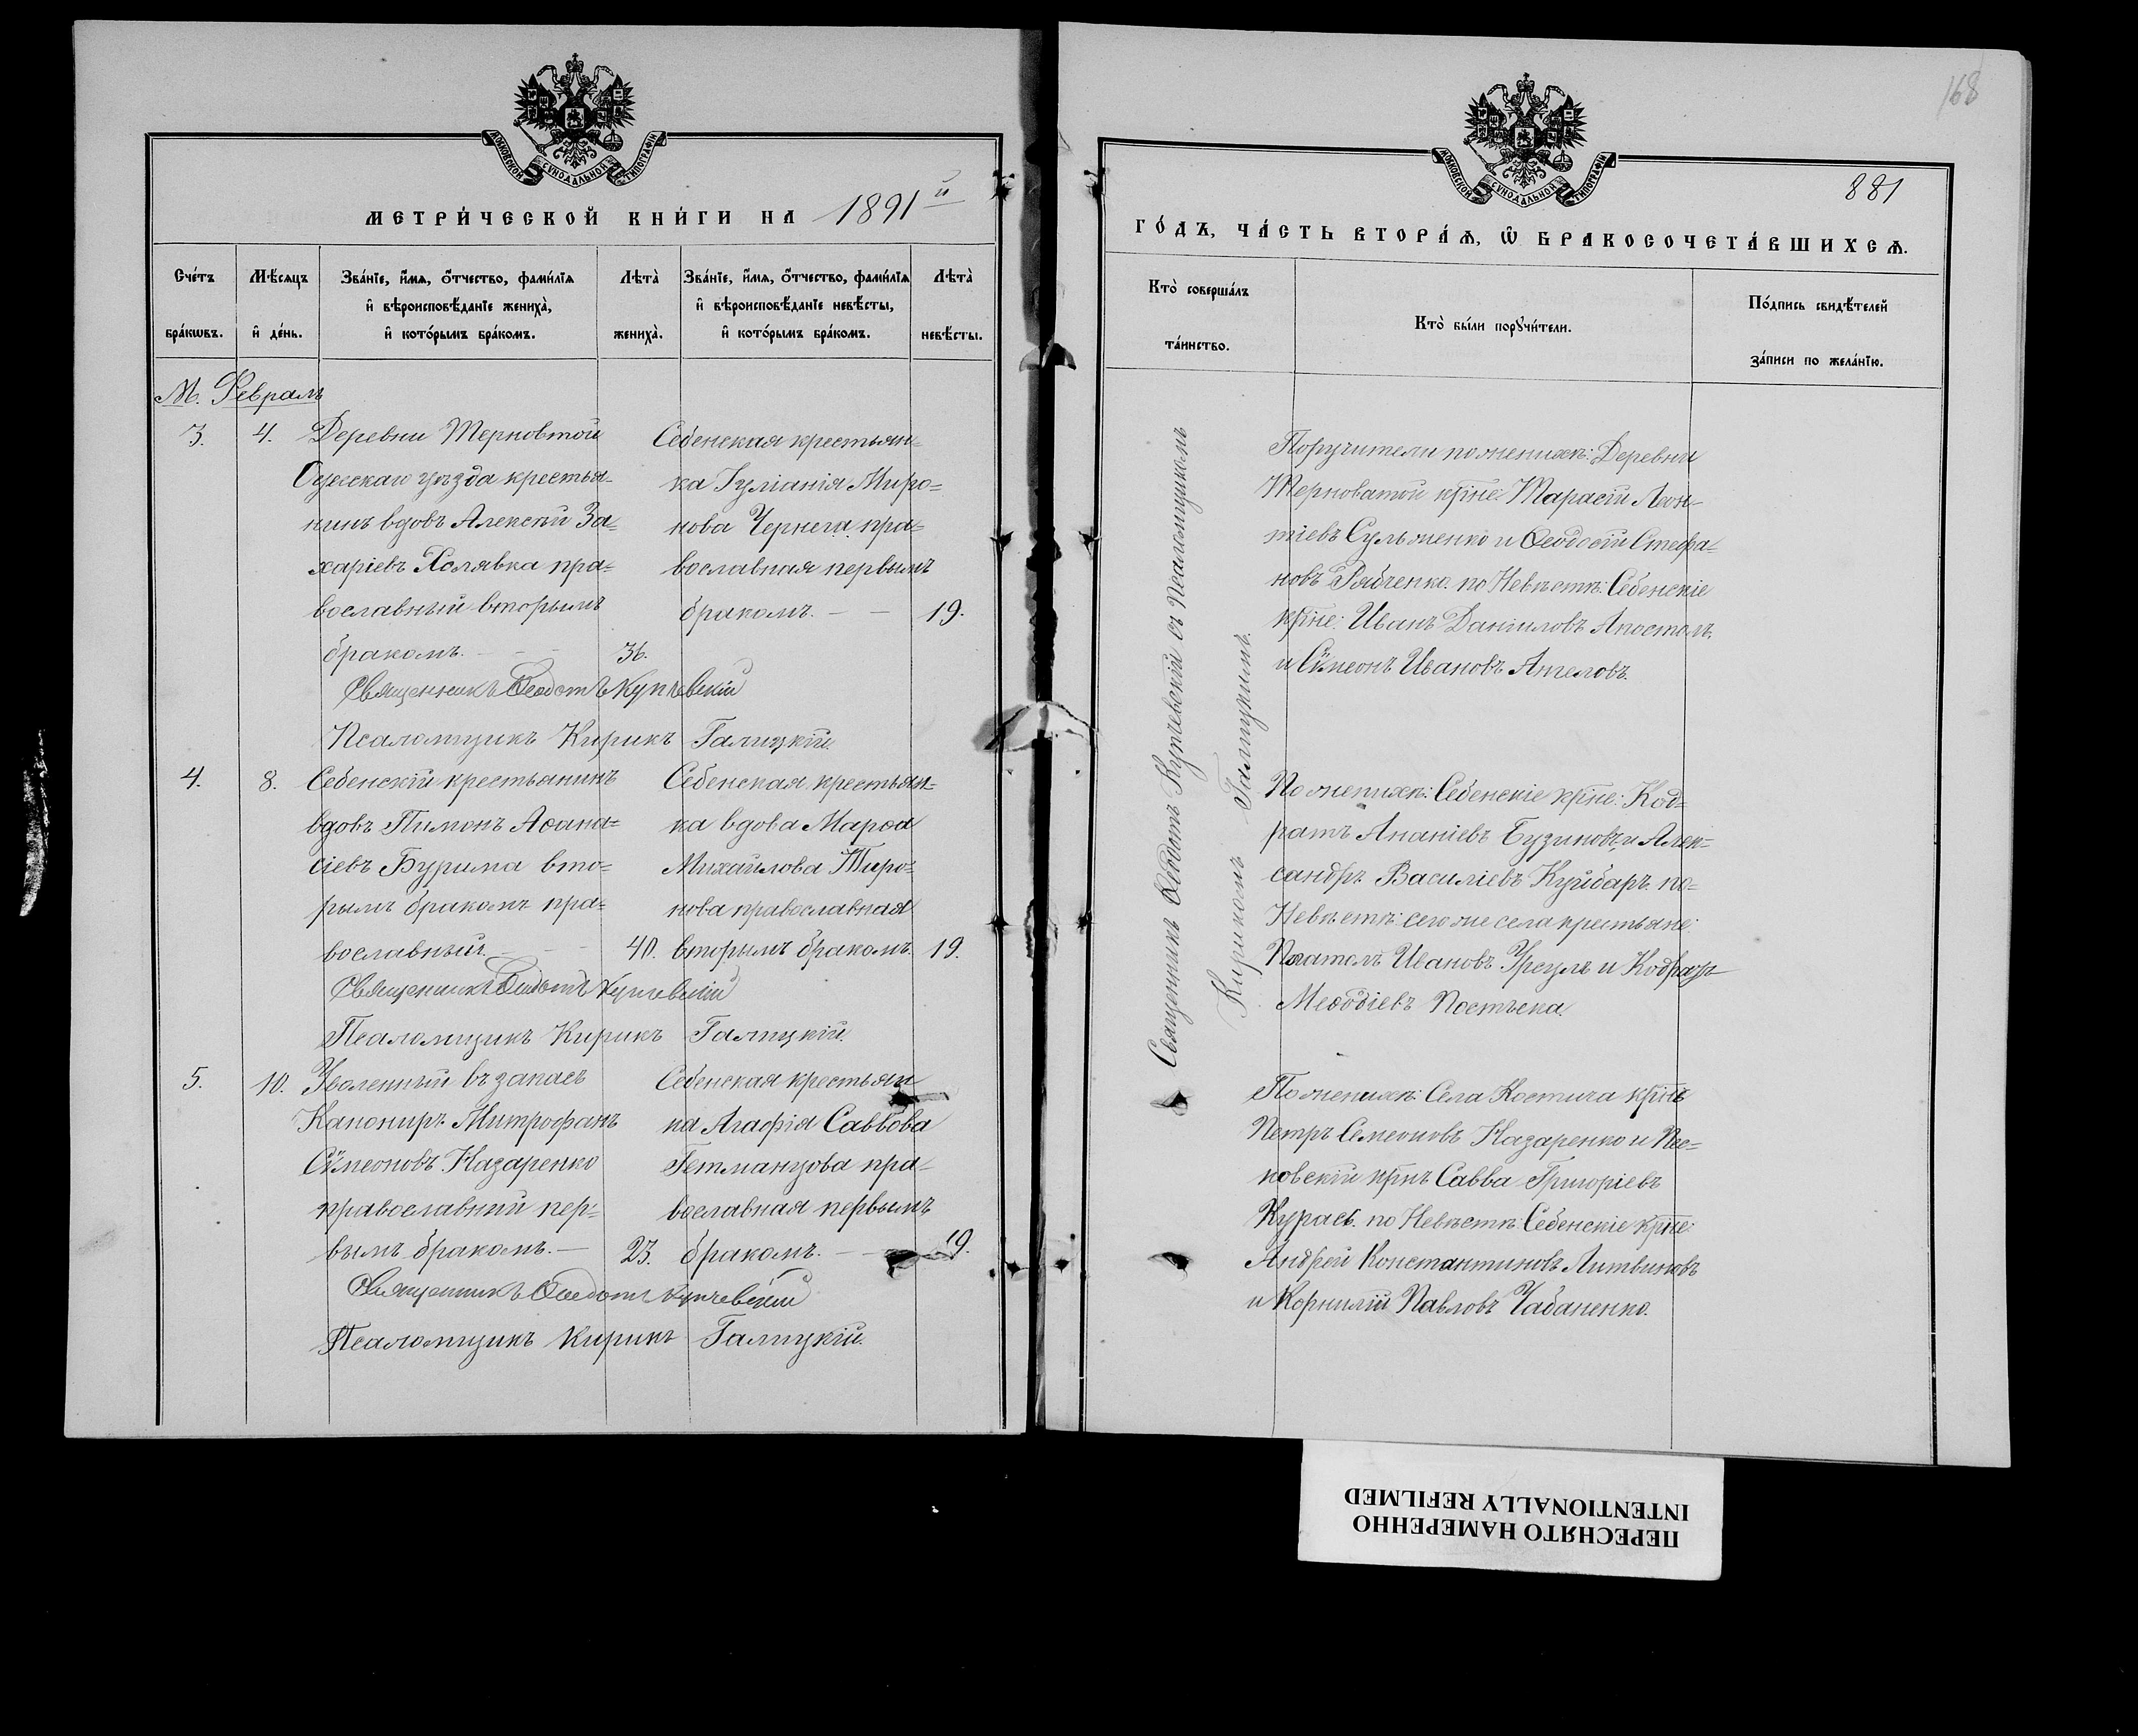 168
МОСКОВСКОЙ СѴНОДАЛЬНОЙ ТИПОГРАФІИ
МЕТРИ́ЧЕСКОЙ КНИ́ГИ НА 1891 й
Сче́тъ бра́кѡвъ.
Мѣ́сяцъ и҆ де́нь.
Зва́нїе, и҆́мѧ, ѻ҆́тчество, фамилїѧ
и҆ вѣроисповѣ́данїе жениха̀,
и҆ кото́рымъ бра́комъ.
Лѣта̀ жениха̀.
Зва́нїе, и҆́мѧ, ѻ҆́тчество, фамилїѧ
и҆ вѣроисповѣ́данїе невѣ́сты,
и҆ кото́рымъ бра́комъ.
Лѣта̀ невѣ́сты.
М. Февраль
3.
4.
Деревни Терноватой
Одесскаго уѣзда крестья-
нинъ вдовъ Алексѣй За-
харіевъ Холявка пра-
вославный вторымъ
бракомъ.
36.
Себенская крестьян-
ка Іуліанія Миро-
нова Чернега пра-
вославная первымъ
бракомъ.
19.
Священникъ Ѳеодотъ Купчевскій
Псаломщикъ Кирикъ Галицкій.
4.
8.
Себенскій крестьянинъ
вдовъ Пимонъ Аѳана-
сіевъ Бурима вто-
рымъ бракомъ пра-
вославный.
40.
Себенская крестьян-
ка вдова Марѳа
Михайлова Тиро-
нова православная
вторымъ бракомъ.
19.
Священникъ Ѳеодотъ Купчевскій
Псаломщикъ Кирикъ Галицкій.
5.
10.
Уволенный въ запасъ
Канониръ Митрофанъ
Сѷмеоновъ Назаренко
православный пер-
вымъ бракомъ.
23.
Себенская крестьян
ка Агафія Саввова
Гетманцова пра-
вославная первымъ
бракомъ.
19.
Священникъ Ѳеодотъ Купчевскій
Псаломщикъ Кирикъ Галицкій.
МОСКОВСКОЙ СѴНОДАЛЬНОЙ ТИПОГРАФІИ
881
ГО́ДЪ, ЧА́СТЬ ВТОРА́Ѧ, Ѽ БРАКОСОЧЕТА́ВШИХСѦ.
Кто̀ соверша́лъ
та́инство.
Кто̀ бы́ли порꙋчи́тели.
По́дпись свидѣ́телей
за́писи по жела́нїю.
Священникъ Ѳеодотъ Купчевскій съ Псаломщикомъ
Кирикомъ Галицкимъ.
Поручители по женихѣ: Деревни
Терноватой кр̃не: Тарасій Леон-
тіевъ Сулоненко и Ѳеодосій Стефа-
новъ Рябченко. по Невѣстѣ: Себенскіе
кр̃не: Иванъ Даніиловъ Апостолъ,
и Сѷмеонъ Ивановъ Ангеловъ.
По женихѣ: Себенскіе кр̃не: Код-
ратъ Ананіевъ Бузиновъ, и Алек-
сандръ Василіевъ Куйбаръ. по
Невѣстѣ: сего же села крестьяне:
Платонъ Ивановъ Урсулъ и Кодратъ
Меѳодіевъ Постъека.
По женихѣ: Села Костича кр̃нъ
Петръ Семеоновъ Назаренко и Пес-
ковскій кр̃нъ Савва Григоріевъ
Курасъ. по Невѣстѣ: Себенскіе кр̃не:
Андрей Константиновъ Литвиновъ
и Корнилій Павловъ Чабаненко.
ПЕРЕСНЯТО НАМЕРЕННО
INTENTIONALLY REFILMED